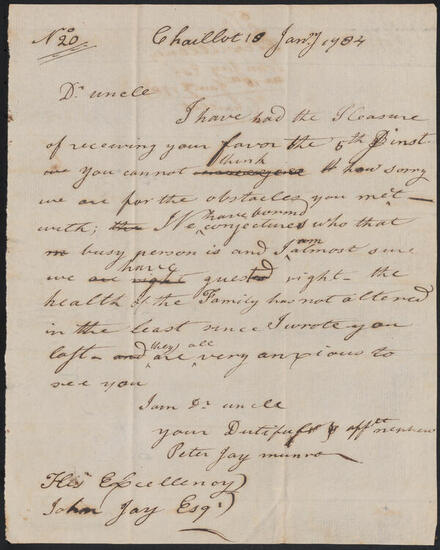 No 20
Chaillot 18 Jany 1784
Dr uncle
I have had the Pleasure
of receiving your favor the 5th inst.
you cannot think how sorry
we are for the obstacles you met
with; the We have formd conjectures who that
busy person is and I am almost sure
we have guesed right - the
health of the Family has not altered
in the least since I wrote you
last - and they all are very anxious to
see you
I am Dr uncle
your Dutiful & afftt nephew
Peter Jay munro
His Excellency
John Jay Esqr